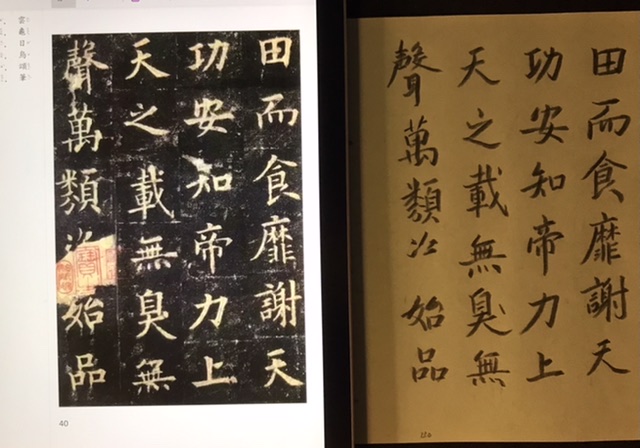 田而食靡謝天
功安知帝力上
天之載無臭無
聲萬類始品
40
田而食靡謝天
功安知帝力上
天之載無臭無
聲萬類始品